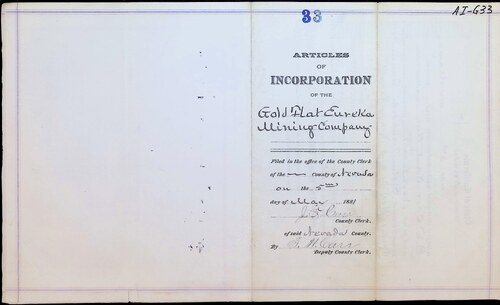 33
AI-G33
ARTICLES
OF
INCORPORATION
OF THE
Gold Flat Eureka
Mining Company
Filed in the office of the County Clerk
of the County of Nevada
on the 5th
day of May 1881
County Clerk,
of said Nevada County.
By
Deputy County Clerk.